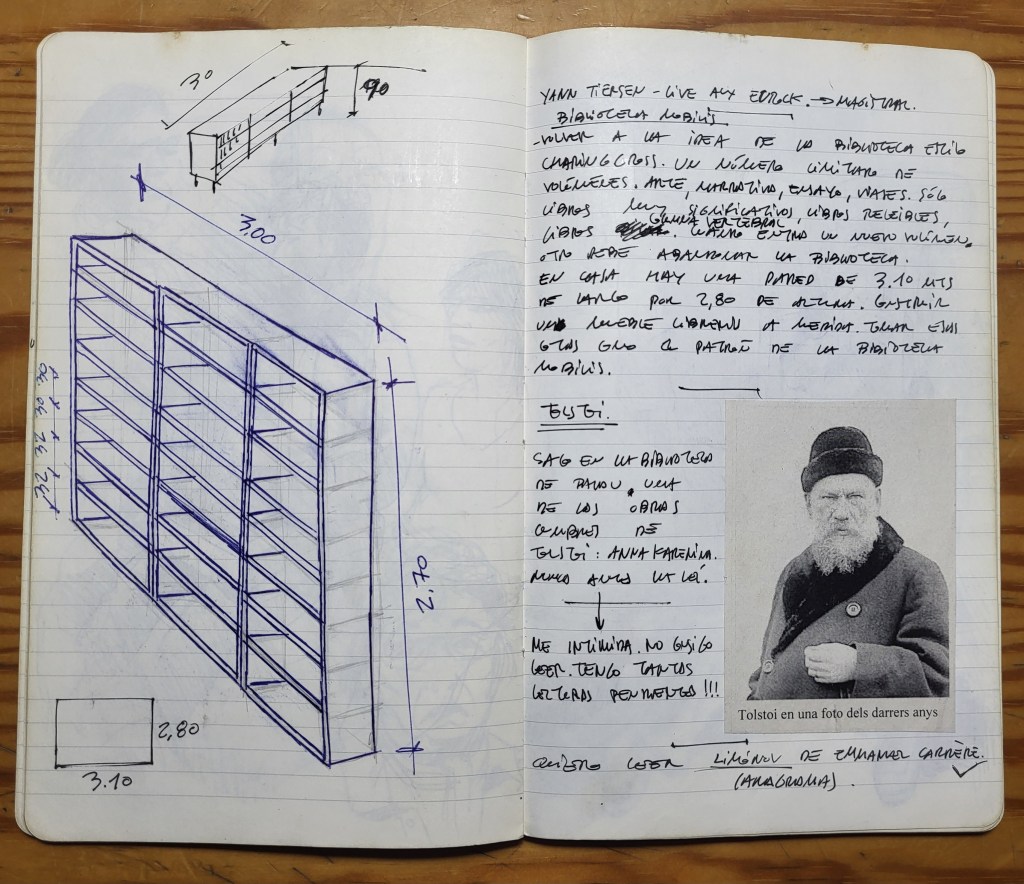 30
90
3.00
2.70
2,80
3.10
YANN TIERSEN - LIVE AUX EUROCK. → MAGISTRAL.
BIBLIOTECA NOBILIS
- VOLVER A LA IDEA DE LA BIBLIOTECA ESTILO
CHARING CROSS. UN NÚMERO LIMITADO DE
VOLÚMENES. ARTE, NARRATIVA, ENSAYO, VIAJES. SÓLO
LIBROS MUY SIGNIFICATIVOS, LIBROS RELEIBLES,
LIBROS COLUMNA VERTEBRAL. CUANDO ENTRA UN NUEVO VOLUMEN,
OTRO DEBE ABANDONAR LA BIBLIOTECA.
EN CASA HAY UNA PARED DE 3.10 MTS
DE LARGO POR 2,80 DE ALTURA. CONSTRUIR
UN MUEBLE LIBRERIA A MEDIDA. TOMAR ESAS
COTAS COMO EL PATRÓN DE LA BIBLIOTECA
NOBILIS.
TOLSTOI.
SACO EN LA BIBLIOTECA
DE PALAU UNA
DE LAS OBRAS
CUMBRES DE
TOLSTOI: ANNA KARENINA.
NUNCA ANTES LA LEÍ.
ME INTIMIDA. NO CONSIGO
LEER. TENGO TANTAS
LECTURAS PENDIENTES!!!
Tolstoi en una foto dels darrers anys
QUIERO LEER LIMÓNOV DE EMMANUEL CARRÈRE.
(ANAGRAMA).